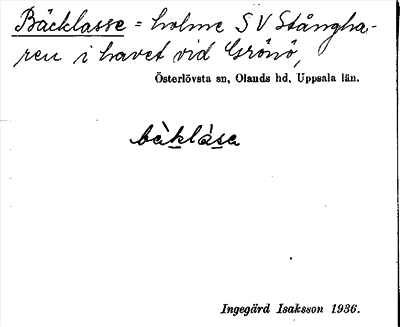 Bäcklasse = holme SV Stångha-
ren i havet vid Grönö,
Österlövsta sn, Olands hd, Uppsala län.
bàklàsa
Ingegärd Isaksson 1936.